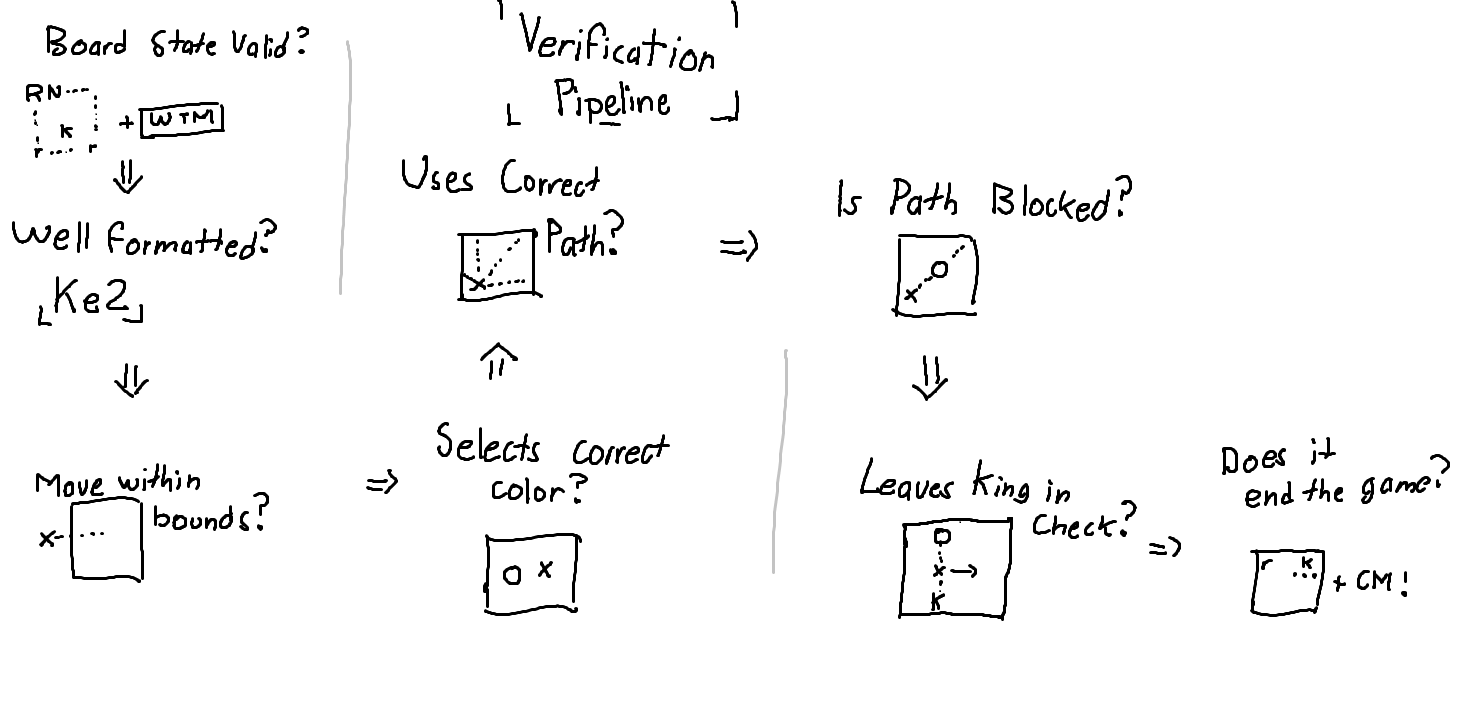 Verification
Pipeline
Board State Valid?
RN
k
r r
+ WTM
Well formatted?
Ke2
Move within
bounds?
x
Selects correct
color?
O x
Uses Correct
Path?
x
Is Path Blocked?
O
x
Leaves King in
Check?
O
x
K
Does it
end the game?
r k
+ CM!